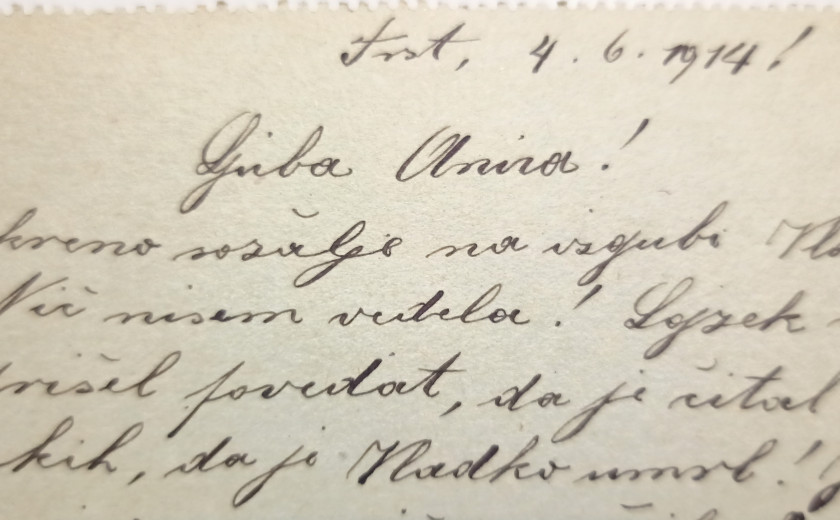 Trst, 4. 6. 1914!
Ljuba Anica!
kreno sožalje na izgubi Vla
Nič nisem vedela! Lojzek
prišel povedat, da je čital
kih, da je Vladko umrl!